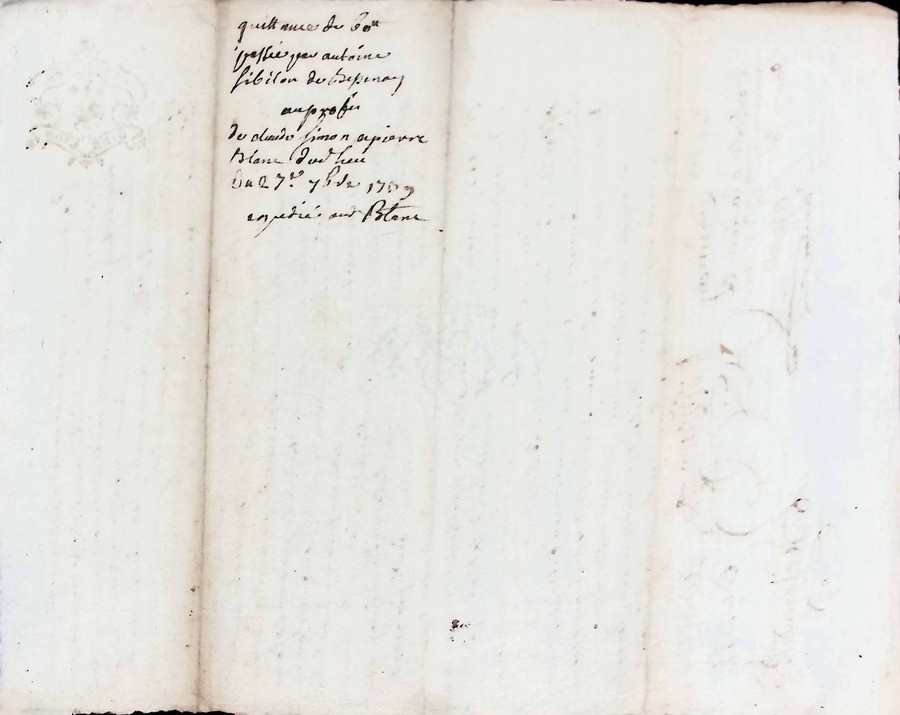 quittance de 60ᵗᵗ
passée par antoine
sibilon de
au profit
de claude simon a pierre
Blanc dud lieu
Du 27ᵉ 7bre
expedié aud Blanc